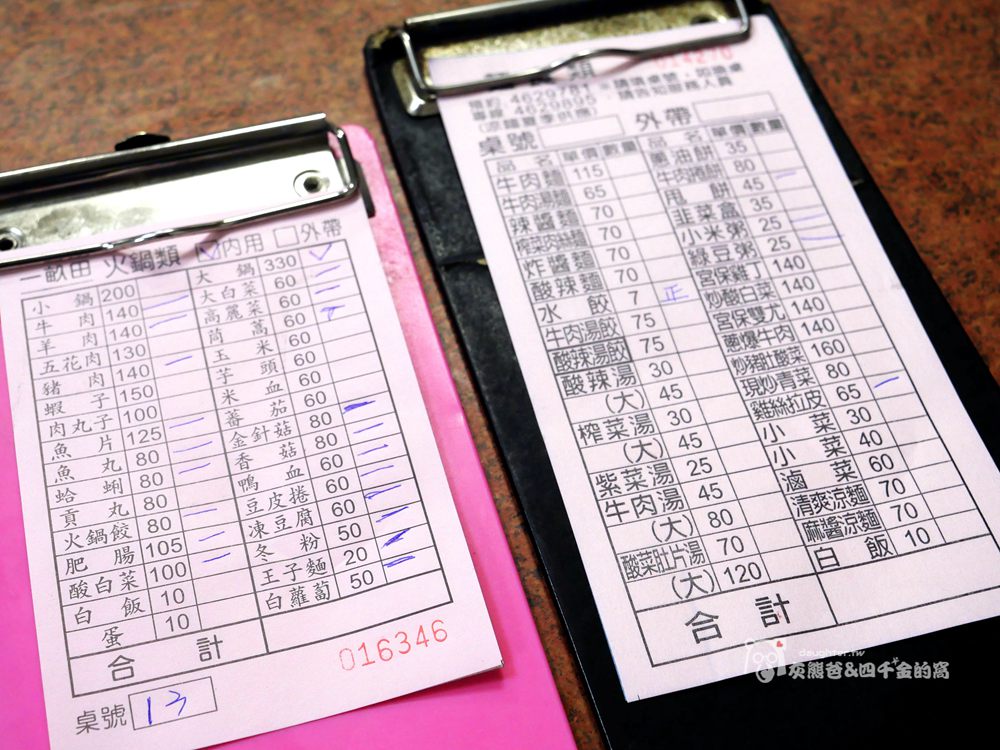 一畝田 火鍋類 內用 外帶
小鍋 200 大鍋 330
牛肉 140 大白菜 60
羊肉 140 高麗菜 60
五花肉 130 茼蒿 60
豬肉 140 玉米 60
蝦子 150 芋頭 60
肉丸子 100 米血 60
魚片 125 蕃茄 60
魚丸 80 金針菇 80
蛤蜊 80 香菇 80
貢丸 80 鴨血 60
火鍋餃 80 豆皮捲 60
肥腸 105 凍豆腐 60
酸白菜 100 冬粉 50
白飯 10 王子麵 20
蛋 10 白蘿蔔 50
合計
016346
桌號 13
014270
4629781 ※請填桌號,如需桌
專線 4629895 請告知服務人員
(涼麵夏季供應)
桌號 外帶
品名 單價 數量 品名 單價 數量
牛肉麵 115 蔥油餅 35
牛肉湯麵 65 牛肉捲餅 80
辣醬麵 70 甩餅 45
榨菜肉絲麵 70 韭菜盒 35
炸醬麵 70 小米粥 25
酸辣麵 70 綠豆粥 25
水餃 7 正 宮保雞丁 140
牛肉湯餃 75 炒酸白菜 140
酸辣湯餃 75 宮保雙尤 140
酸辣湯 30 蔥爆牛肉 140
(大) 45 炒豬肚酸菜 160
榨菜湯 30 現炒青菜 80
(大) 45 雞絲拉皮 65
紫菜湯 25 小菜 30
牛肉湯 45 小菜 40
(大) 80 滷菜 60
酸菜肚片湯 70 清爽涼麵 70
(大) 120 麻醬涼麵 70
白飯 10
合計
daughter.tw
灰熊爸&四千金的窩